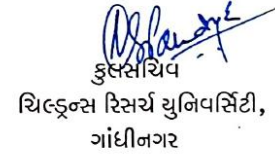 કુલસચિવ
ચિલ્ડ્રન્સ રિસર્ચ યુનિવર્સિટી,
ગાંધીનગર